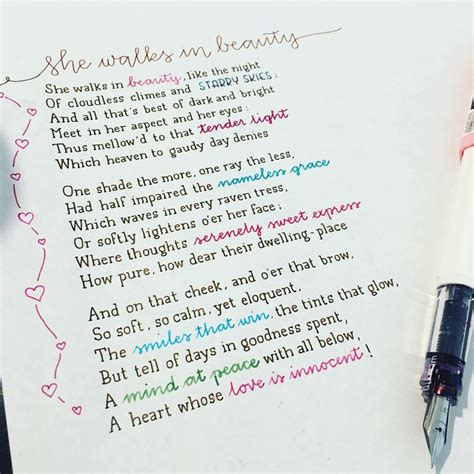 she walks in beauty
She walks in beauty, like the night
Of cloudless climes and STARRY SKIES;
And all that's best of dark and bright
Meet in her aspect and her eyes:
Thus mellow'd to that tender light
Which heaven to gaudy day denies
One shade the more, one ray the less,
Had half impaired the nameless grace
Which waves in every raven tress,
Or softly lightens o'er her face;
Where thoughts serenely sweet express
How pure, how dear their dwelling-place
And on that cheek, and o'er that brow,
So soft, so calm, yet eloquent,
The smiles that win, the tints that glow,
But tell of days in goodness spent,
A mind at peace with all below,
A heart whose love is innocent!